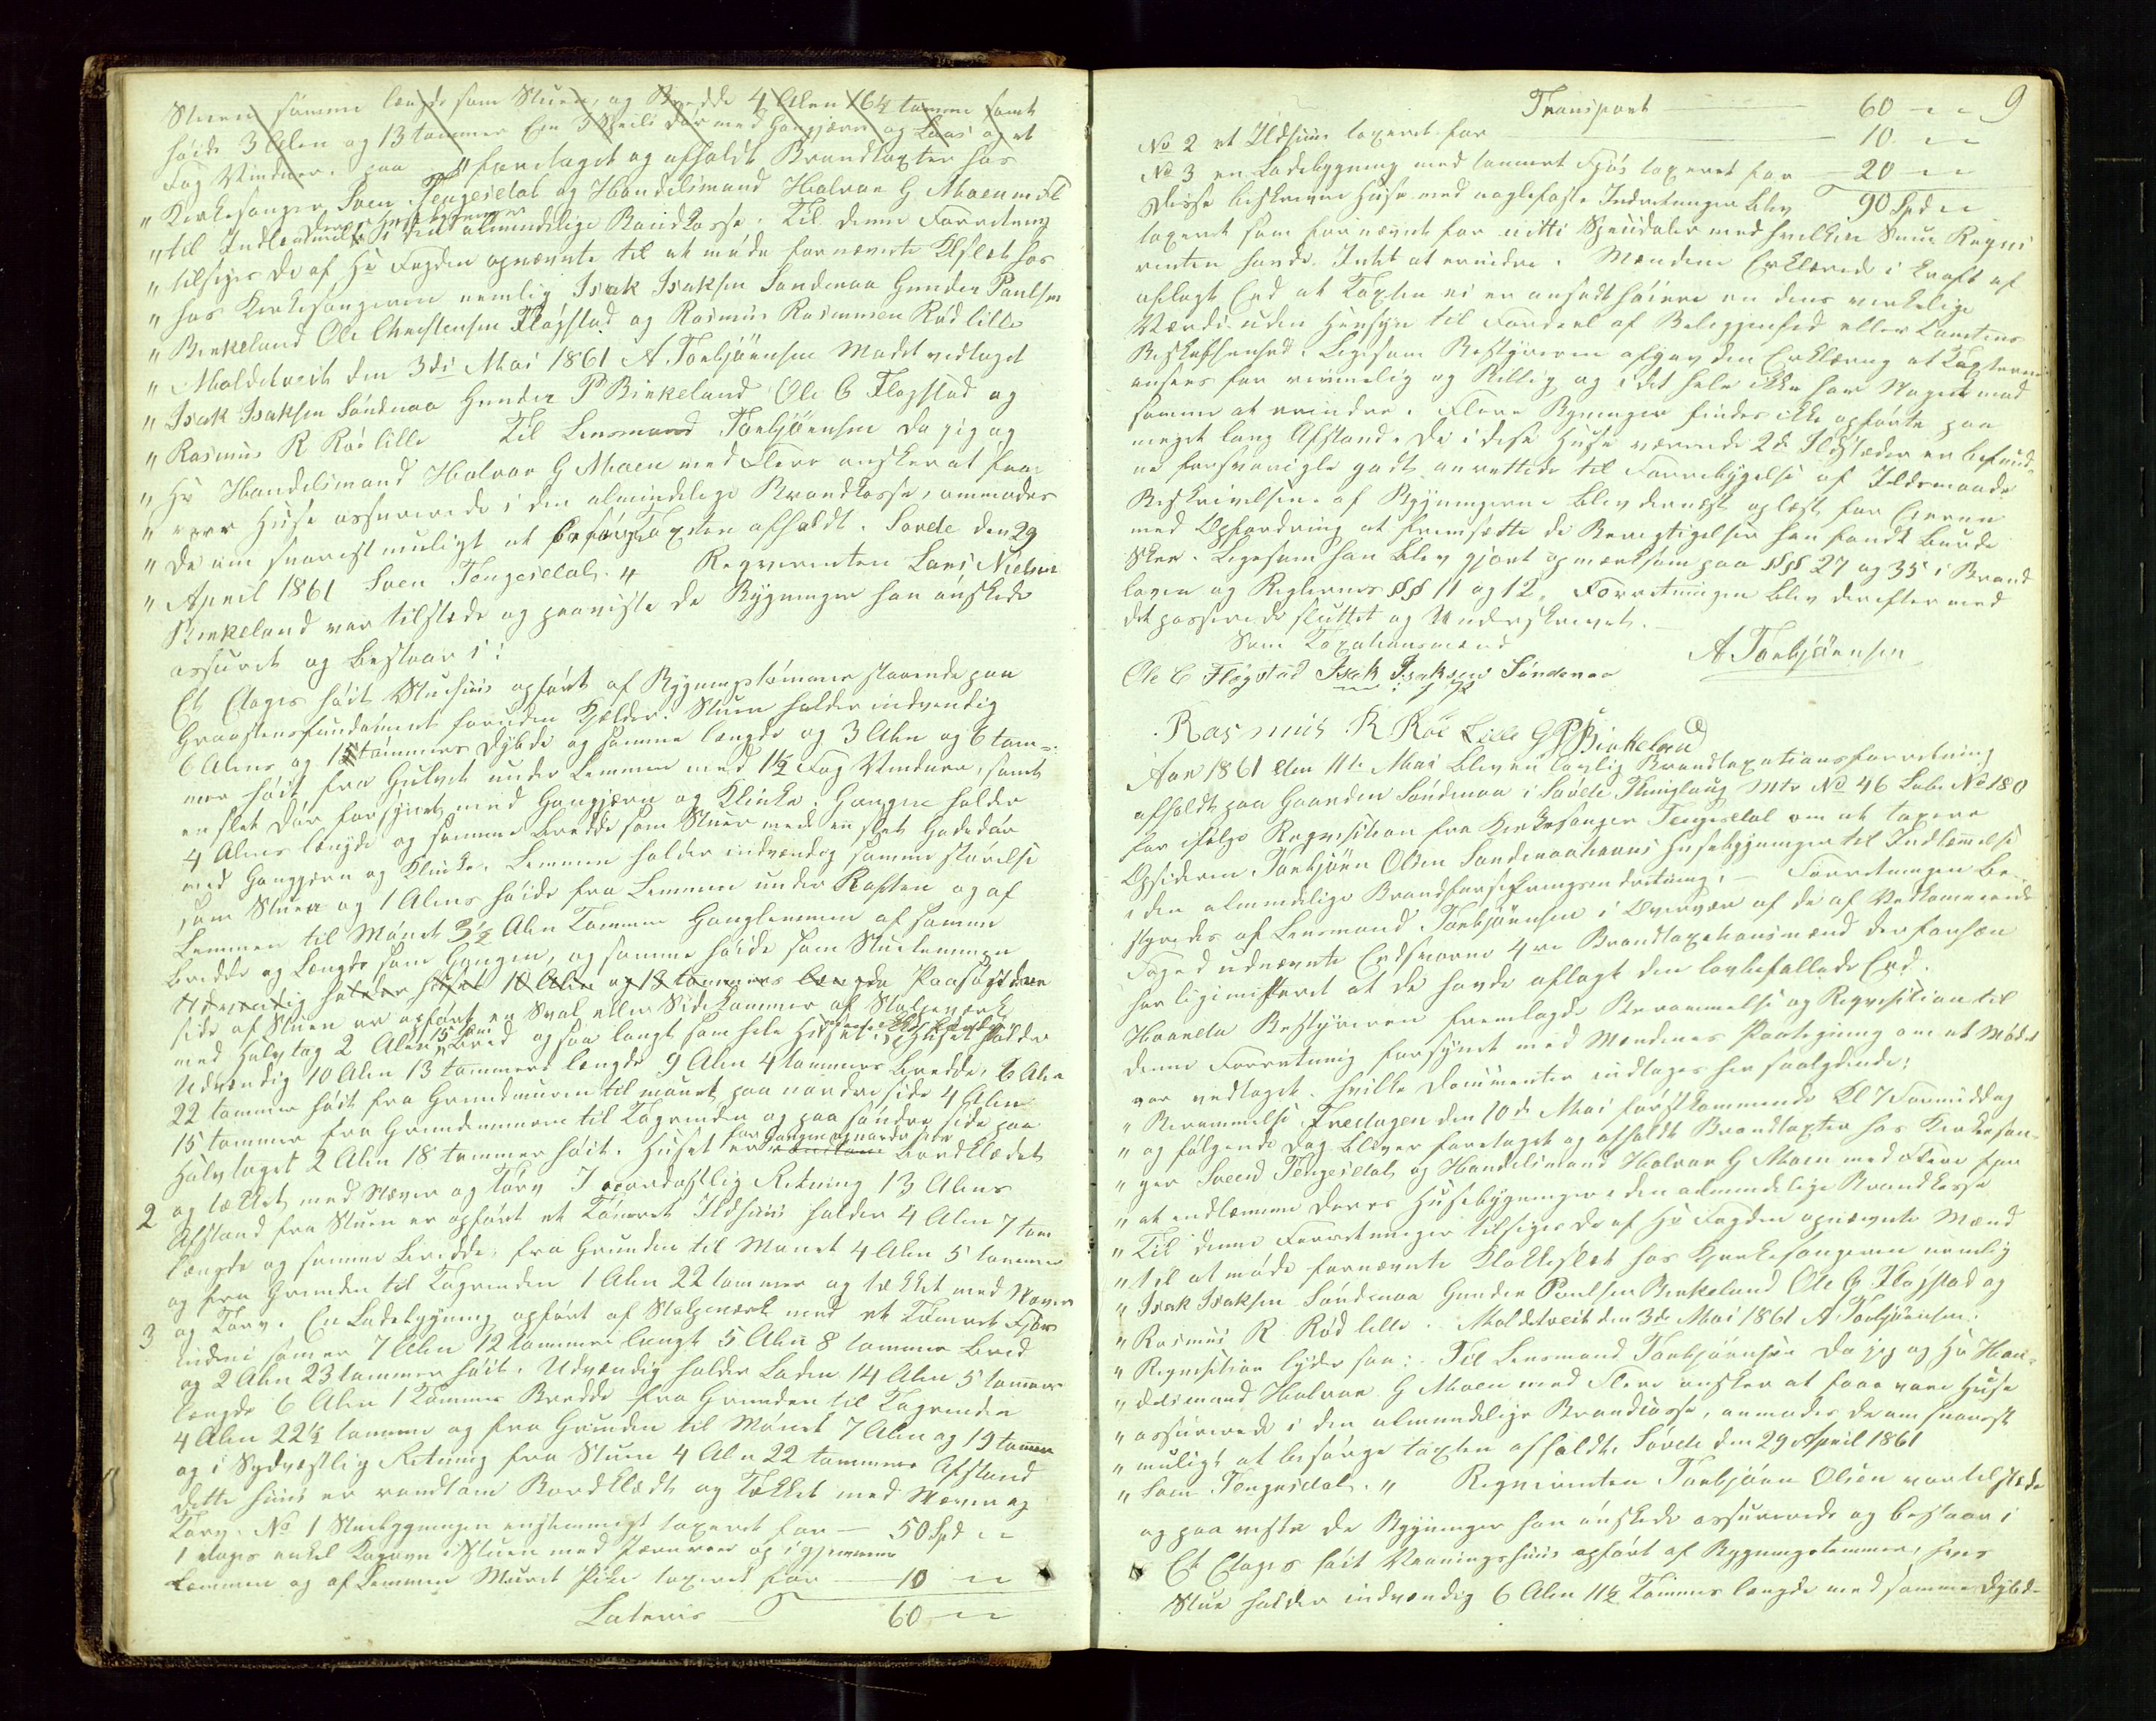 Stuen samme længde som Stuen, og Bredde 4 Alen 16½ tomme samt
høide 3 Alen og 13 tommer En 3 Speils dør med Gangjærn og Laas og et
Fag Vinduer. paa foretaget og afholdt Brandtaxter hos
" Kirkesanger Sven Tengesdal og Handelsmand Halvor G Moen m Fl
" til Indlemmelse deres Husebygninger i den almindelige Brandkasse. Til denne Forretning
" tilsiges de af Hr Fogden opnævnte til at møde fornævnte Klslæt hos
" hos Kirkesangeren nemlig Isak Isaksen Sandenaa Gunder Paulsen
" Birkeland Ole Christensen Fløgstad og Rasmus Rasmusen Rød lille
" Moldtveit den 3die Mai 1861 A. Torbjörnsen Mødet vedtaget
" Isak Isaksen Söndenaa Gunder P Birkeland Ole C Flogstad og
" Rasmus R Röe lille Til Lensmand Torbjörnsen Da jeg og
" Hr Handelsmand Halvor G Moen med Flere ønsker at faae
" vore Huse assurerede i den almindelige Brandkasse, anmodes
" De om snarest muligt at besørge Taxten afholdt. Sovde den 29
" April 1861 Sven Tengesdal. " Reqvirenten Lars Nielsen
Birkeland var tilstede og paaviste de Bygninger han ønskede
assuret og bestaar i:
Et Etages høit Stuehuus opført af Bygningstømmer staaende paa
Graastensfundament foruden Kjelder. Stuen holder indvendig
6 Alens og 15 tommers dybde og samme længde og 3 Alen og 6 tom-
mer høit fra Gulvet under Lemmen med 1½ Fag Vinduer, samt
en slet dør forsynet med Gangjærn og Klinke. Gangen holder
4 Alens længde og samme Bredde som Stuen med en slet Gadedør
med Gangjern og Klinke. Lemmen holder indvendig samme størelse
som Stuen og 1 Alens høide fra Lemmen under Raften og af
Lemmen til Mønet 3½ Alen Tomme Ganglemmen af samme
Bredde og Længde som Gangen, og samme høide som Stuelemmen
Udvendig holder huset 10 Alen og 13 tommers længde Paa søndre
side af Stuen er opført en Sval eller Sidekammer af Stolpeværk
med Halvtag 2 Alen 15 tom bred og saa langt som hele Huset. Huset holder
Udvendig 10 Alen 13 tommers længde 9 Alen 4 tommers Bredde, 6 Alen
22 tommer høit fra Grundmuren til mønet paa nordre side 4 Alen
15 tommer fra Grundmuren til Tagrenden og paa søndre side paa
Halvtaget 2 Alen 18 tommer høit. Huset er for Gangen og nordre side Bordklædet
og tækket med Næver og Torv I nordostlig Retning 13 Alens
2 Afstand fra Stuen er opført et Tømret Ildhuus holder 4 Alen 7 tom
længde og samme Bredde, fra Grunden til Mønet 4 Alen 5 tommer
og fra Grunden til Tagrenden 1 Alen 22 tommer og tækket med Næver
3 og Torv. En Ladebygning opført af Stolpeværk med et Tømret Fjøs
indeni som er 7 Alen 12 tommer langt 5 Alen 8 tomme bred
og 2 Alen 23 tommer høit. Udvendig holder Laden 14 Alen 5 tommers
længde 6 Alen 1 Tommes Bredde fra Grunden til Tagrenden
4 Alen 22½ tomme og fra Grunden til Mønet 7 Alen og 19 tommer
og i Sydvestlig Retning fra Stuen 4 Alen 22 tommers Afstand
dette huus er rundtom Bordklædt og Tækket med Næver og
Torv. No 1 Stuebygningen enstemmigt taxeret for — 50 Spd "
1 etages enkel Kakovn i Stuen med Jernrør op igjennem
Lemmen og af Lemmen Muret Pibe taxeret for — 10 "
Lateris — 60 "
9
Transport — 60 "
No 2 et Ildhuus taxeret for — 10 "
No 3 en Ladebygning med tømret Fjøs taxeret for — 20 "
Disse beskrevne Huse med naglefaste Indretninger blev 90 Spd "
taxeret som fornævnt for nitti Speciedaler med hvilken Sum Reqvi
renten havde Intet at erindre. Mændene Erklærede i kraft af
aflagt Eed at Taxten ei er ansadt høiere en dens virkelige
Værdi uden Hensyn til Fordeel af Beliggenhed eller Tomtens
Beskaffenhed. Ligesom Bestyreren afgav den Erklæring at Taxterne
ansees for rimmelig og Billig og i det hele ikke har Noget mod
samme at erindre. Flere Bygninger findes ikke opførte paa
meget lang Afstand. De i disse Huse værende 2de Ildsteder er befund-
ne forsvarligle godt anrettede til Forrebygelse af Ildsvaade
Beskrivelsen af Bygningerne blev dernæst oplæst for Eieren
med Opfordring at fremsette de Berigtigelser han fandt burde
Skee. Ligesom han blev gjort opmærksom paa §§ 27 og 35 i Brand
loven og Reglernes §§ 11 og 12. Forretningen blev derefter med
det passerede sluttet og Underskrevet.
Som Taxationsmænd A Torbjörnsen
Ole C Flögstad Isak Isaksen Söndenaa
Rasmus R Röe Lille G P Birkeland
Aar 1861 den 11te Mai blev en lovlig Brandtaxationsforretning
afholdt paa Gaarden Söndenaa i Søvde Thinglaug Mtr No 46 Løbe No 180
her ifølge Reqvisition fra Kirkesanger Tengesdal om at taxere
Opsideren Torbjörn Olsen Sandenaahavns Husebygninger til Indlemmelse
i den almindelige Brandforsikringsindretning. — Forretningen be-
styredes af Lensmand Torbjörnsen i Overvær af de af Vedkommende
Foged udnævnte Eedsvorne 4re Brandtaxationsmænd der forhen
har ligimitteret at de havde aflagt den lovbefallede Eed.
Haaneta Bestyreren fremlagde Berammelse og Reqvisition til
denne Forretning forsynet med Mændenes Paategning om at Mødet
var vedtaget. Hvilke documenter indtages her saalydende:
" Berammelse Fredagen den 10de Mai førstkommende Kl 7 Formiddag
" og følgende Dag bliver foretaget og afholdt Brandtaxter hos Kirkesan-
" ger Sveen Tengesdal og Handelsmand Halvor G Moen med Flere for
" at indlemme deres Husebygninger i den almindelige Brandkasse
" Til denne Forretninger tilsiges de af Hr Fogden opnævnte Mænd
" til at møde fornævnte Klokkeslæt hos Kirkesangeren nemlig
" Isak Isaksen Söndenaa Gunder Poulsen Birkeland Ole C. Fløgstad og
" Rasmus R Rød lille. Moldtveit den 3de Mai 1861 A Torbjörnsen.
" Reqvisition lyder saa: Til Lensmand Torbjörnsen Da jeg og Hr Han-
" delsmand Halvor G Moen med Flere ønsker at faae vore Huse
" assurerede i den almindelige Brandcasse, anmodes De om snarest
" muligt at besørge taxten afholdt. Søvde den 29 April 1861
" Sven Tengesdal. " Reqvirenten Torbjörn Olsen var tilstede
og paaviste de Bygninger han ønskede assurerede og bestaar i
Et Etages høit Vaaningshuus opført af Bygningstømmer, hvis
Stue holder indvendig 6 Alen 11½ Tommers længde med samme Dybd-